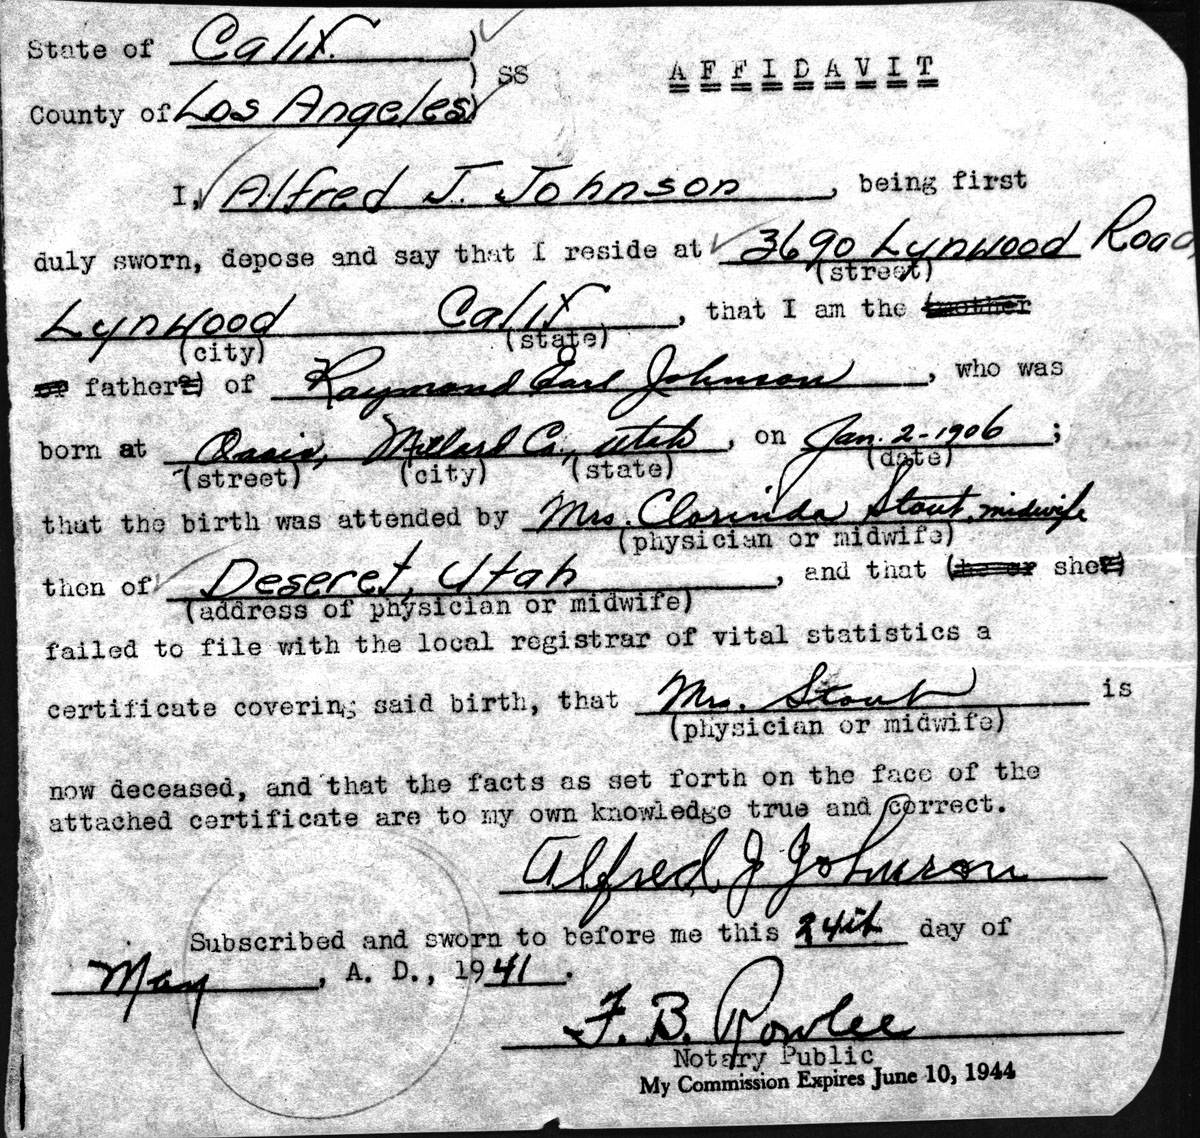 State of Calif. )
) SS
AFFIDAVIT
County of Los Angeles)
I, Alfred J. Johnson, being first
duly sworn, depose and say that I reside at 3690 Lynwood Road,
(street)
Lynwood Calif, that I am the (mother
(city) (state)
or father) of Raymond Earl Johnson, who was
born at Oasis, Millard Co., Utah, on Jan. 2-1906;
(street) (city) (state) (date)
that the birth was attended by Mrs. Clorinda Stout, midwife
(physician or midwife)
then of Deseret, Utah, and that (he or she)
(address of physician or midwife)
failed to file with the local registrar of vital statistics a
certificate covering said birth, that Mrs. Stout is
(physician or midwife)
now deceased, and that the facts as set forth on the face of the
attached certificate are to my own knowledge true and correct.
Alfred J Johnson
Subscribed and sworn to before me this 24th day of
May, A. D., 1941.
F. B. Rowlee
Notary Public
My Commission Expires June 10, 1944